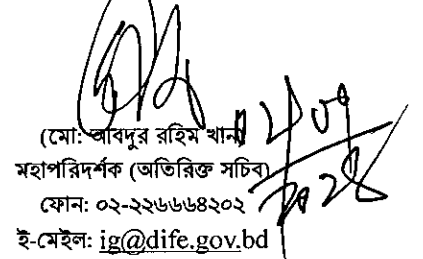 (মো: আবদুর রহিম খান)
মহাপরিদর্শক (অতিরিক্ত সচিব)
ফোন: ০২-২২৬৬৬৪২০২
ই-মেইল: ig@dife.gov.bd